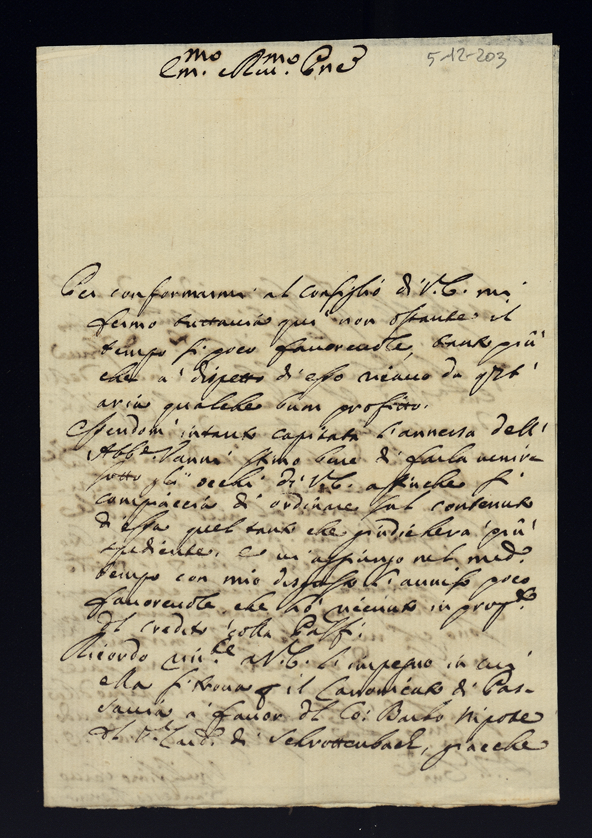 Em.mo Rev.mo Pne
5-12-203
Per conformarmi al consiglio di V.E. mi
fermo tuttavia qui non ostante il
tempo si poco favorevole, tanto più
che a dispetto di esso ricavo da
aria qualche buon profitto.
Essendomi intanto capitata l'annessa dell'
Abb.e Vanni stimo bene di farla venire
sotto gli occhi di V.E. affinche si
compiaccia di ordinare sul contenuto
di essa quel tanto che giudicherà più
spediente, e m'affliggo nel med.o
tempo con mio l'avviso poco
favorevole che hò ricevuto in
del credito colla
Ricordo a V.E. l'impegno in cui
ella si trova il Canonicato di Pas-
savia à favor del Co: Nipote
del di Schrottenbach, giacche